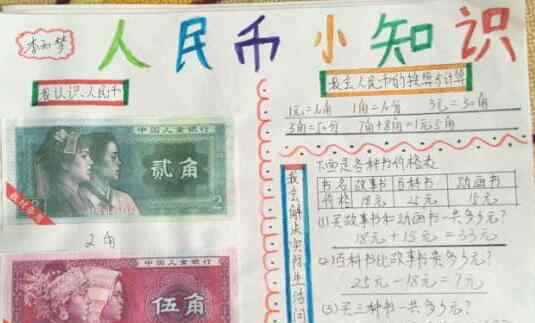 李和梦
人民币小知识
我认识人民币
中国人民银行
贰角
2
教材专用
2角
中国人民银行
伍角
我会人民币的换算与计算
1元=10角 1角=10分 3元=30角
7角+8角=1元5角
下面是各种书价格表
书名 故事书 百科书 动画书
价格 18元 25元 15元
(1)买故事书和动画书一共多少元?
18元+15元=33元
(2)百科书比故事书贵多少元?
25元-18元=7元
(3)买三种书一共多少元?
我会解决实际生活问